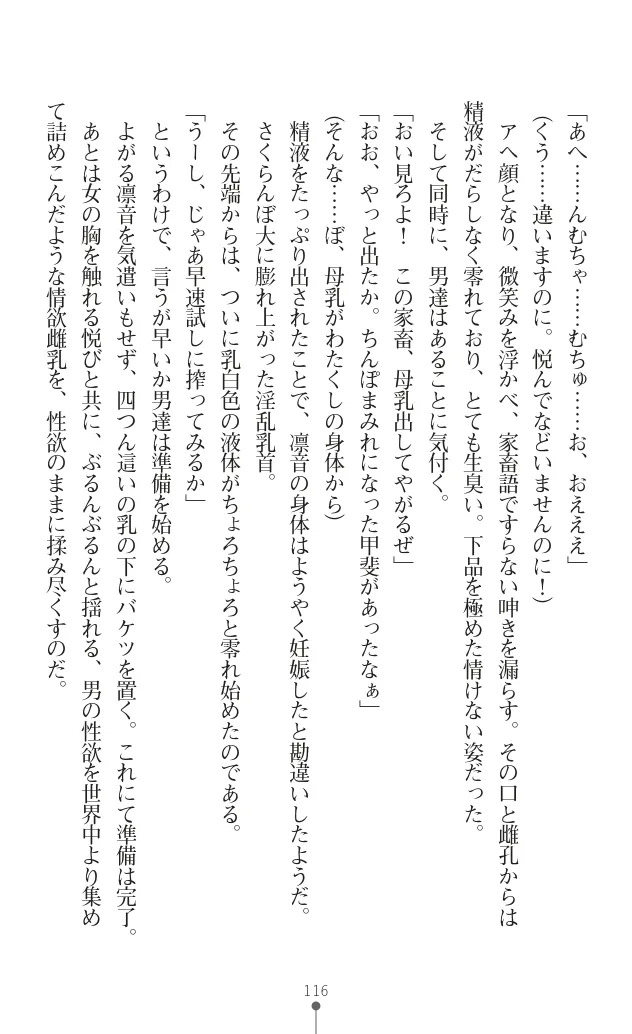 「あへ……んむちゃ……むちゅ……お、おえええ」
(くう……違いますのに。悦んでなどいませんのに！)
アヘ顔となり、微笑みを浮かべ、家畜語ですらない呻きを漏らす。その口と雌孔からは
精液がだらしなく零れており、とても生臭い。下品を極めた情けない姿だった。
そして同時に、男達はあることに気付く。
「おい見ろよ！　この家畜、母乳出してやがるぜ」
「おお、やっと出たか。ちんぽまみれになった甲斐があったなぁ」
(そんな……ぼ、母乳がわたくしの身体から)
精液をたっぷり出されたことで、凛音の身体はようやく妊娠したと勘違いしたようだ。
さくらんぼ大に膨れ上がった淫乱乳首。
その先端からは、ついに乳白色の液体がちょろちょろと零れ始めたのである。
「うーし、じゃあ早速試しに搾ってみるか」
というわけで、言うが早いか男達は準備を始める。
よがる凛音を気遣いもせず、四つん這いの乳の下にバケツを置く。これにて準備は完了。
あとは女の胸を触れる悦びと共に、ぶるんぶるんと揺れる、男の性欲を世界中より集め
て詰めこんだような情欲雌乳を、性欲のままに揉み尽くすのだ。
116